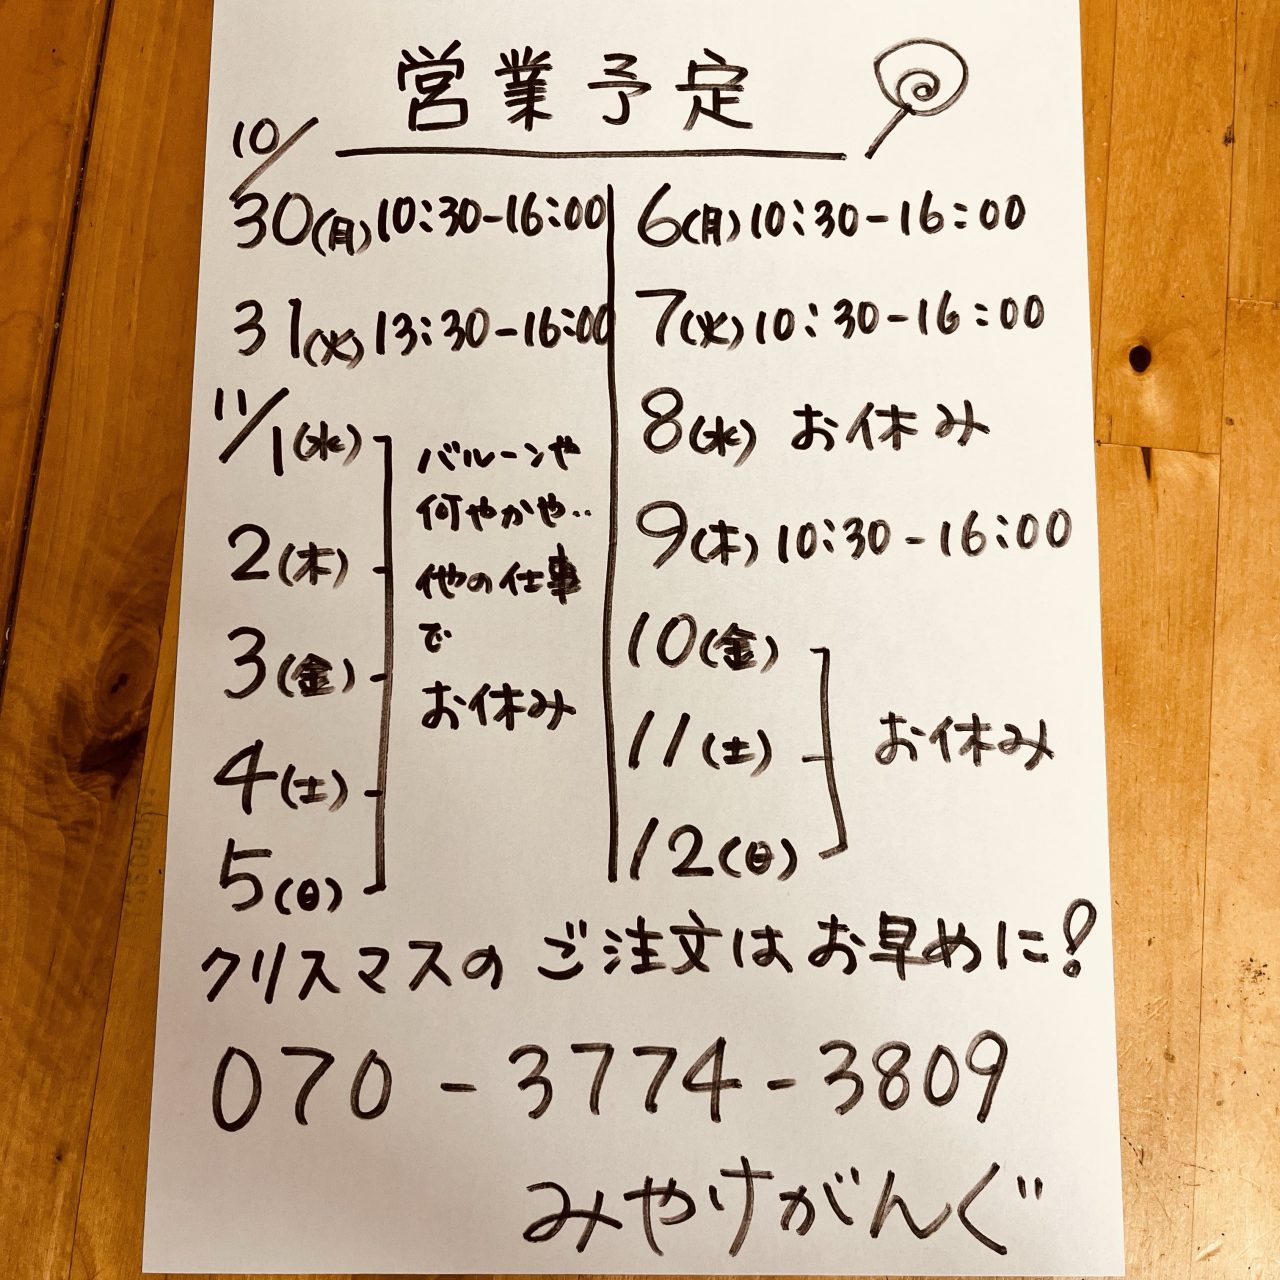 営業予定
10/
30(月)10:30-16:00
31(火)13:30-16:00
11/1(水)
2(木)
3(金)
4(土)
5(日)
バルーンや
何やかや..
他の仕事
で
お休み
6(月)10:30-16:00
7(火)10:30-16:00
8(水) お休み
9(木)10:30-16:00
10(金)
11(土)
12(日)
お休み
クリスマスのご注文はお早めに!
070-3774-3809
みやけがんぐ